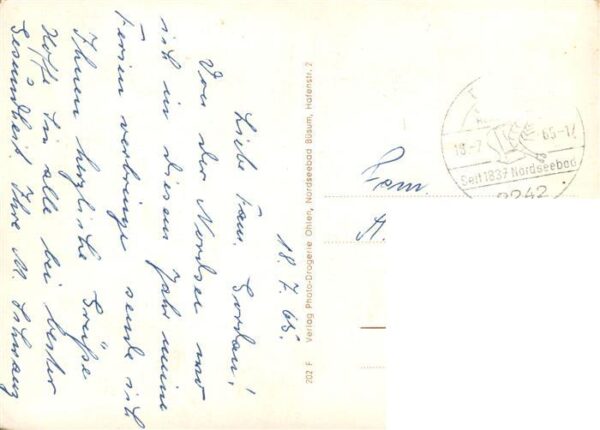 18.7.65.
Liebe Fam. Gordan!
Von der Nordsee wo
ich in diesem Jahr meine
Ferien verbringe sende ich
Ihnen herzliche Grüße
Hoffe Sie alle bei bester
Gesundheit. Ihre M.
202 F Verlag Photo-Drogerie Ohlen, Nordseebad Büsum, Hafenstr. 2
Fam.
A.
18-7 65-17
Seit 1837 Nordseebad
2242